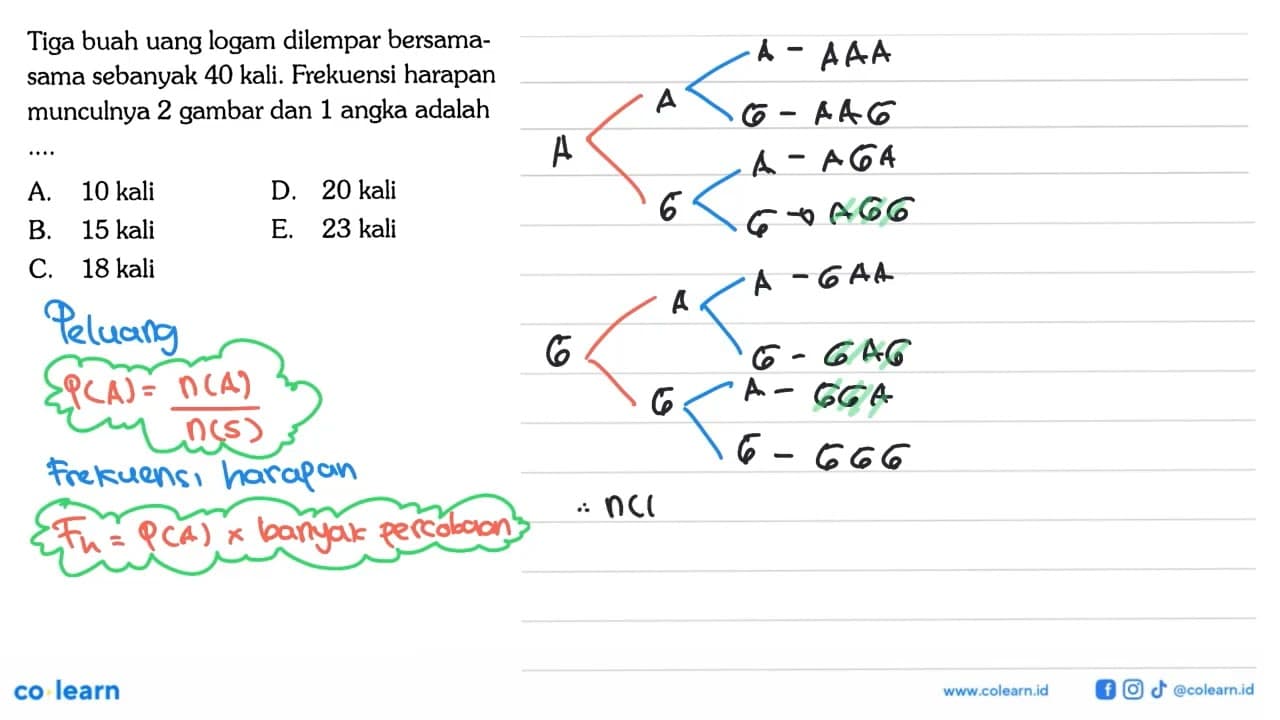 Tiga buah uang logam dilempar bersama-
sama sebanyak 40 kali. Frekuensi harapan
munculnya 2 gambar dan 1 angka adalah
....
A. 10 kali D. 20 kali
B. 15 kali E. 23 kali
C. 18 kali
Peluang
P(A) = n(A)
n(S)
Frekuensi harapan
Fh = P(A) × banyak percobaan
A - AAA
A
G - AAG
A
A - AGA
G
G → AGG
A - GAA
A
G
G - GAG
A - GGA
G
G - GGG
∴ n(
co learn
www.colearn.id
@colearn.id